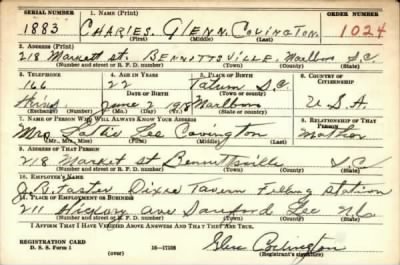 SERIAL NUMBER 1. NAME (Print) ORDER NUMBER
1883 CHARLES. GLENN. COVINGTON. 1024
(First) (Middle) (Last)
2. ADDRESS (Print)
218 Market st. BENNETTSVILLE, Marlboro S.C.
(Number and street or R. F. D. number) (Town) (County) (State)
3. TELEPHONE 4. AGE IN YEARS 5. PLACE OF BIRTH 6. COUNTRY OF CITIZENSHIP
166 22 Tatum S.C.
DATE OF BIRTH (Town or county)
June 2 1918 Marlboro U.S.A.
(Exchange) (Number) (Mo.) (Day) (Yr.) (State or country)
7. NAME OF PERSON WHO WILL ALWAYS KNOW YOUR ADDRESS 8. RELATIONSHIP OF THAT PERSON
Mrs Lee Covington Mother
(Mr., Mrs., Miss) (First) (Middle) (Last)
9. ADDRESS OF THAT PERSON
218 Market st Bennettsville S.C.
(Number and street or R. F. D. number) (Town) (County) (State)
10. EMPLOYER'S NAME
J.B. Dixie Tavern Filling Station
11. PLACE OF EMPLOYMENT OR BUSINESS
211 Hickory ave Sanford Lee N.C.
(Number and street or R. F. D. number) (Town) (County) (State)
I AFFIRM THAT I HAVE VERIFIED ABOVE ANSWERS AND THAT THEY ARE TRUE.
REGISTRATION CARD
D. S. S. Form 1 (over) 16-17105 Glenn Covington
(Registrant's signature)